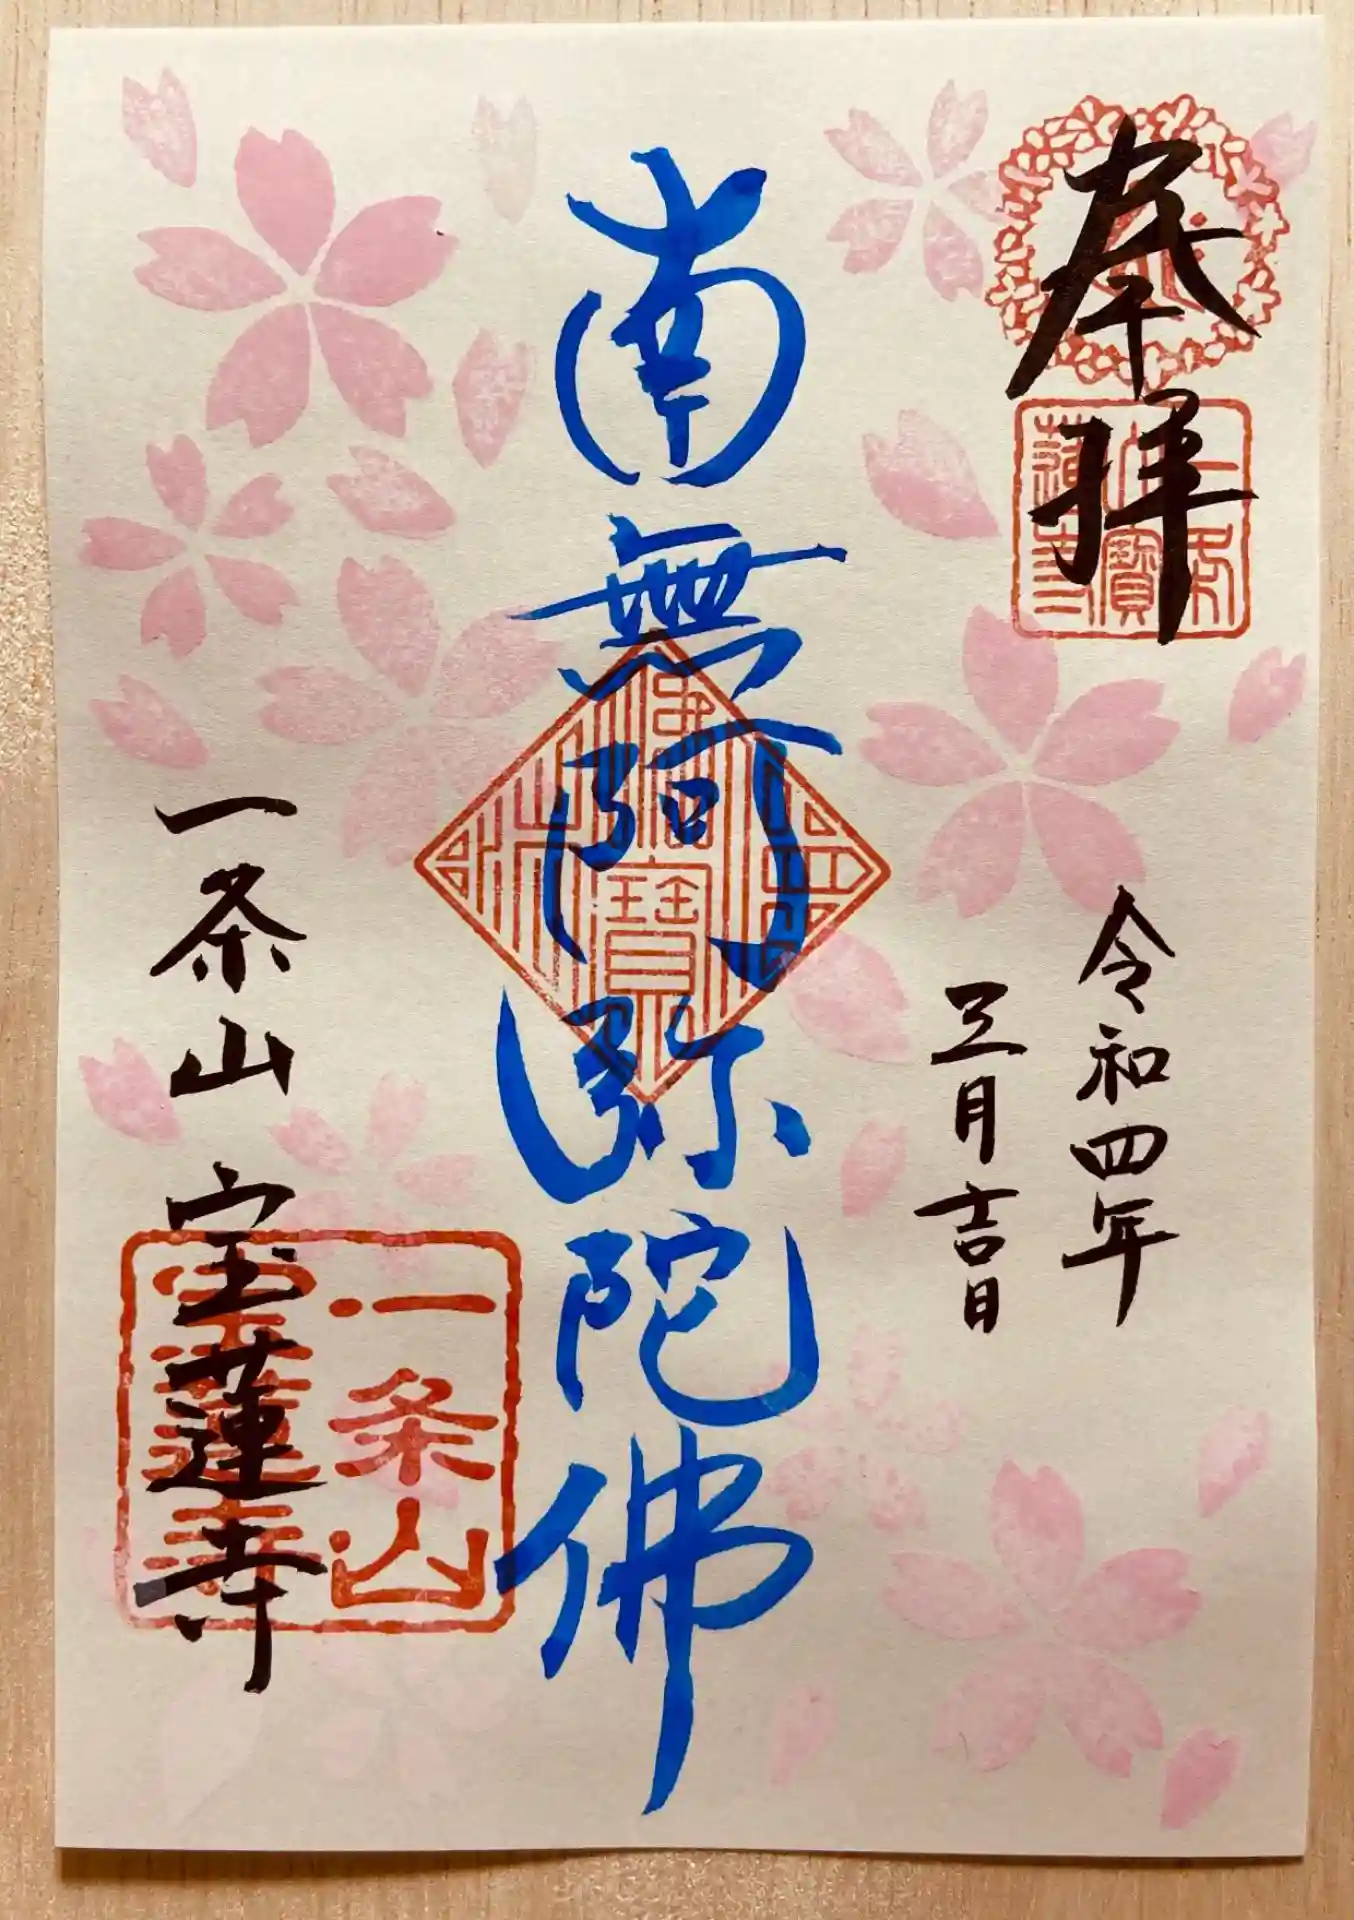 奉拝
令和四年
三月吉日
南無阿弥陀佛
一条山 宝蓮寺
一条山
宝蓮寺